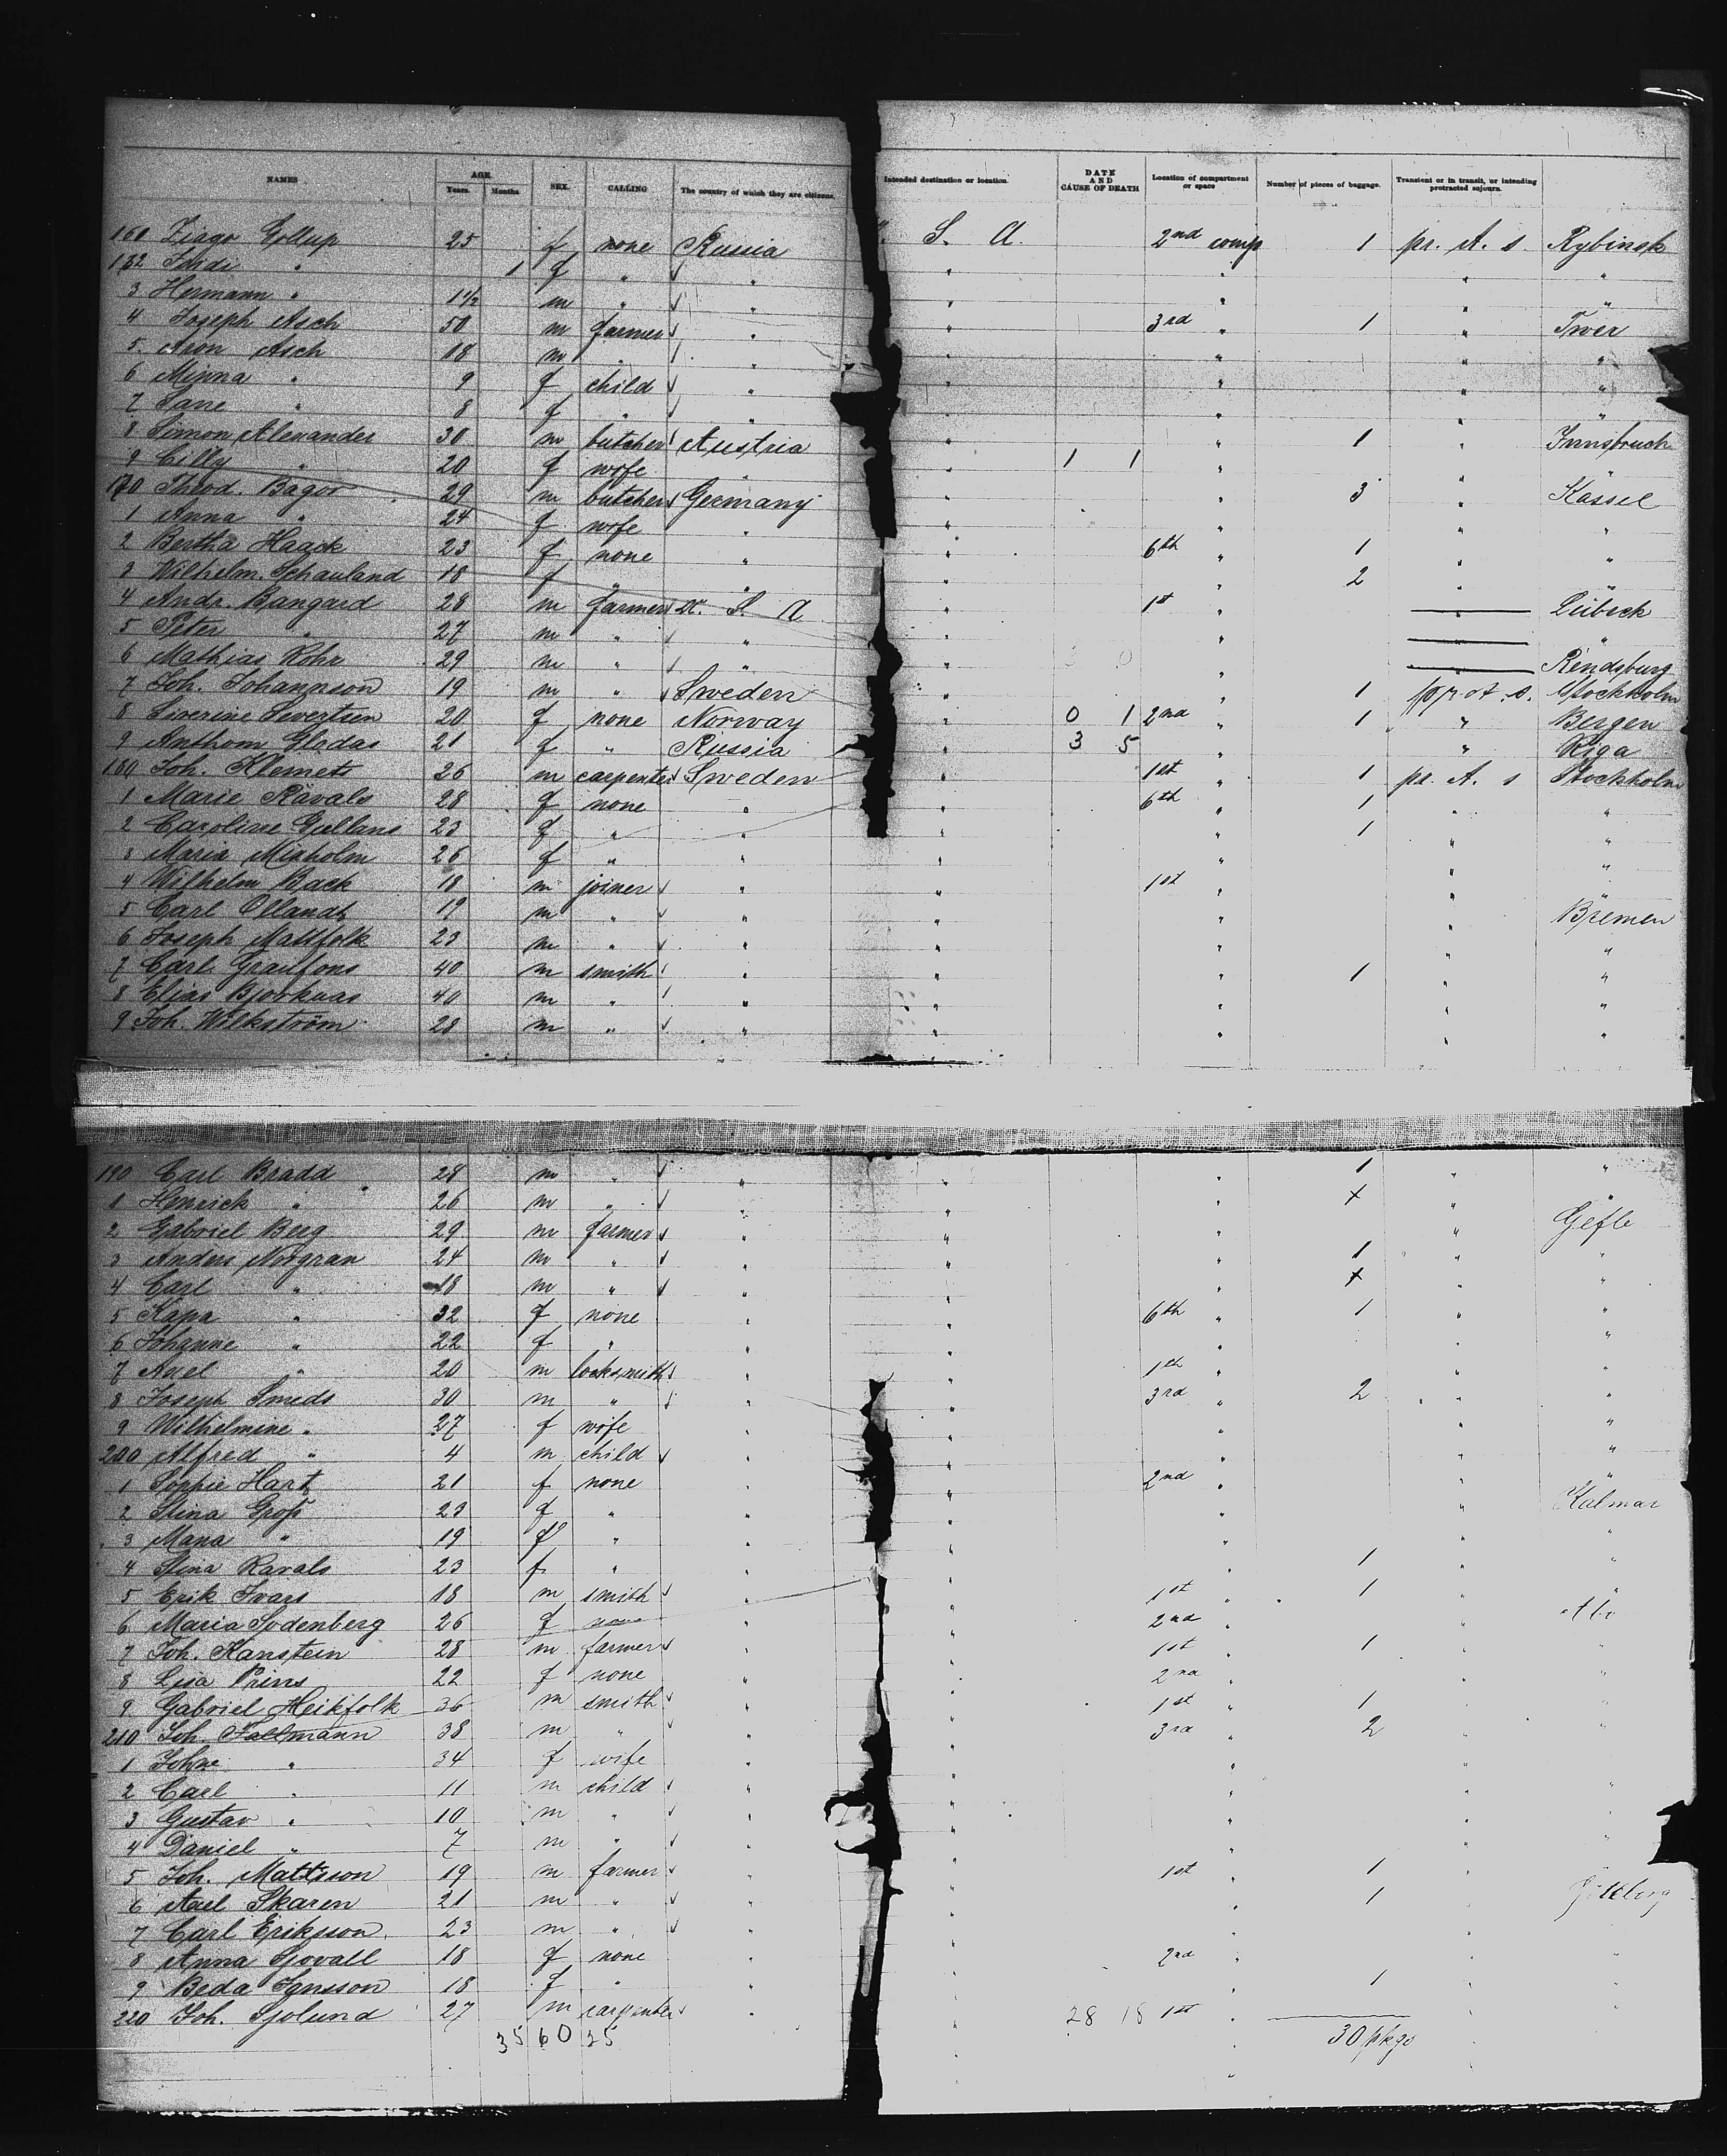 NAMES AGE Years. Months SEX. CALLING The country of which they are citizens. Intended destination or location. DATE AND CAUSE OF DEATH Location of compartment or space Number of pieces of baggage. Transient or in transit, or intending protracted sojourn.
Gollup 25 f none Russia S. A. 2nd comp 1 pr. A. s. Rybinsk
" 1 f " " " " " "
3 Hermann " 1 1/2 m " " " " " "
4 Joseph Asch 50 m farmer " " 3rd " 1 " Twer
5. Aron Asch 18 m " " " " " "
6 Minna " 9 f child " " " " "
7 Sane " 8 f " " " " " "
8 Simon Alexander 30 m butcher Austria " " 1 " Innsbruck
9 Cilly " 20 f wife " " 1 1 "
170 Theod. Bagor 29 m butcher Germany " " 3 " Kassel
1 Anna " 24 f wife " " " " "
2 Bertha Haack 23 f none " " 6th " 1 " "
3 Wilhelm. Schauland 18 f " " " " 2 " "
4 Andr. Bangard 28 m farmer U. S. A " 1st " " Lübeck
5 Peter " 27 m " " " " " "
6 Mathias Rohr 29 m " " " 3 0 " " Rendsburg
7 Joh. Johannson 19 m " Sweden " " 1 pr. A. s. Stockholm
8 Severine Severtsen 20 f none Norway " 0 1 2nd " 1 " Bergen
9 Anthom Glrdas 21 f " Russia " 3 5 " " Riga
180 Joh. Klemets 26 m carpenter Sweden " 1st " 1 pr. A. s Stockholm
1 Marie Råvals 28 f none " " 6th " 1 " "
2 Caroline Gullans 23 f " " " " 1 " "
3 Maria Mixholm 26 f " " " " " "
4 Wilhelm Back 18 m joiner " " 1st " " "
5 Carl Ollands 19 m " " " " " Bremen
6 Joseph Mattfolk 23 m " " " " " "
7 Carl Graufons 40 m smith " " " 1 " "
8 Elias Bjorkuas 40 m " " " " " "
9 Joh. Wilkström 28 m " " " " " "
190 Carl Bradd 28 m " " " " 1 " "
1 Henrick " 26 m " " " " x " "
2 Gabriel Berg 29 m farmer " " " " Gefle
3 Anders Norgran 24 m " " " " 1 " "
4 Carl " 18 m " " " " x " "
5 Kapa " 32 f none " " 6th " 1 " "
6 Johanne " 22 f " " " " " "
7 Axel " 20 m locksmith " " 1th " " "
8 Joseph Smeds 30 m " " " 3rd " 2 " "
9 Wilhelmine " 27 f wife " " " " "
200 Alfred " 4 m child " " " " "
1 Sophie Hart 21 f none " " 2nd " " "
2 Stina Groß 23 f " " " " " Kalmar
3 Mana " 19 f " " " " " "
4 Stina Ravals 23 f " " " " 1 " "
5 Erik Ivars 18 m smith " " 1st " 1 " "
6 Maria Sodenberg 26 f none " " 2nd " " Abo
7 Joh. Kanstein 28 m farmer " " 1st " 1 " "
8 Lisa Prins 22 f none " " 2nd " " "
9 Gabriel Heikfolk 36 m smith " " 1st " 1 " "
210 Joh. Fallmann 38 m " " " 3rd " 2 " "
1 Johne " 34 f wife " " " "
2 Carl " 11 m child " " " " "
3 Gustav " 10 m " " " " " "
4 Daniel " 7 m " " " " " "
5 Joh. Mattsson 19 m farmer " " 1st " 1 "
6 Axel Skaren 21 m " " " " 1 " Göteborg
7 Carl Eriksson 23 m " " " " " "
8 Anna Sjovall 18 f none " " 2nd " " "
9 Beda Jgnsson 18 f " " " " 1 " "
220 Joh. Sjolund 27 m carpenter " " 28 18 1st " " "
35 60 25 30 pkgs